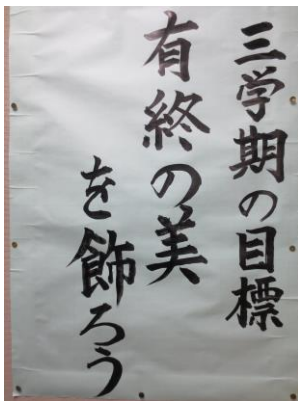 三学期の目標
有終の美
を飾ろう